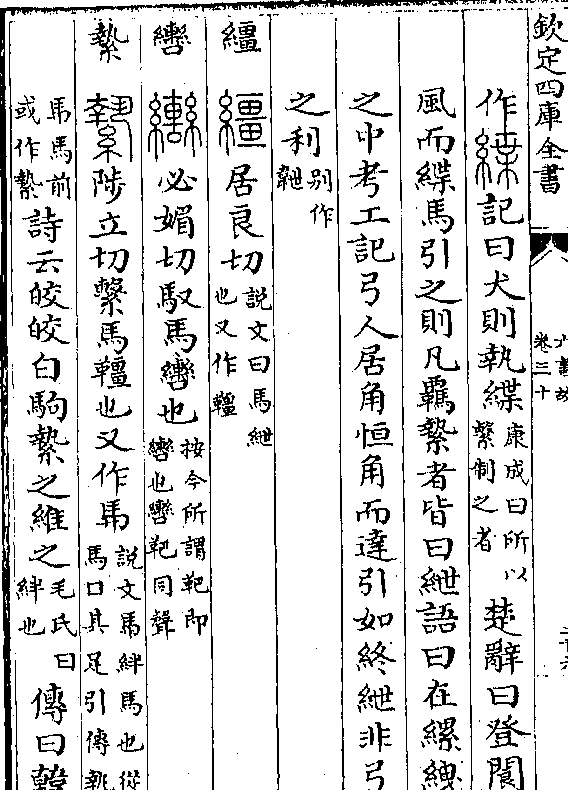 欽定四庫全書
卷三十
作緤記曰犬則執緤康成曰所以繫制之者楚辭曰登閬
風而緤馬引之則凡羈縶者皆曰紲語曰在縲絏
之中考工記弓人居角恒角而達引如終紲非弓
之利别作靾
繮繮居良切説文曰馬紲也又作韁
轡轡必媚切馭馬轡也按今所謂靶即轡也轡靶同聲
縶縶陟立切繫馬韁也又作馬説文馬絆馬也從馬口其足引傳執
馬馬前或作縶詩云皎皎白駒縶之維之毛氏曰絆也傳曰韓